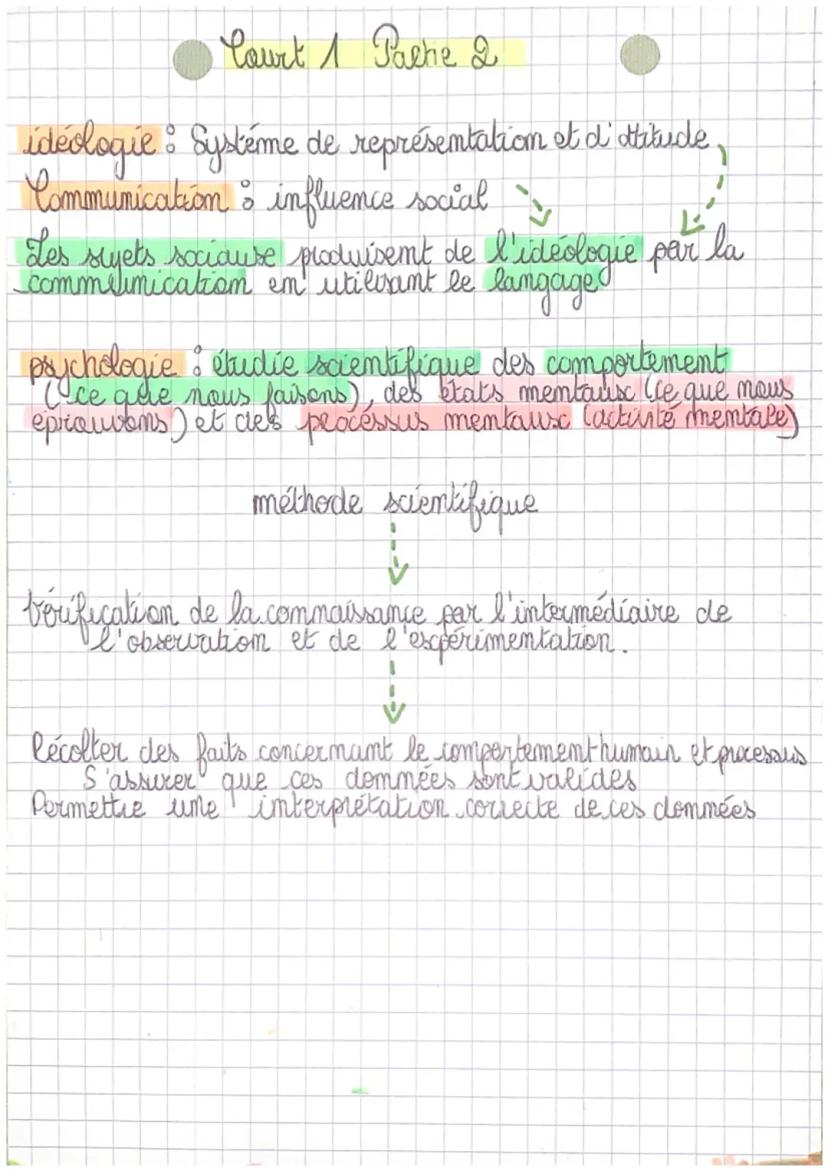 Court 1 Partie 2
idéologie : Systéme de représentation et d'attitude
Communication : influence social
Les sujets sociaux produisent de l'idéologie par la
communication en utilisant le langage
psychologie : étudie scientifique des comportement
(ce que nous faisons), des états mentaux (ce que nous
éprouvons) et des procéssus mentaux (activité mentale)
méthode scientifique
Vérification de la connaissance par l'intermédiaire de
l'observation et de l'expérimentation.
Récolter des faits concernant le comportement humain et processus
S'assurer que ces données sont valides
Permettre une interprétation correcte de ces données